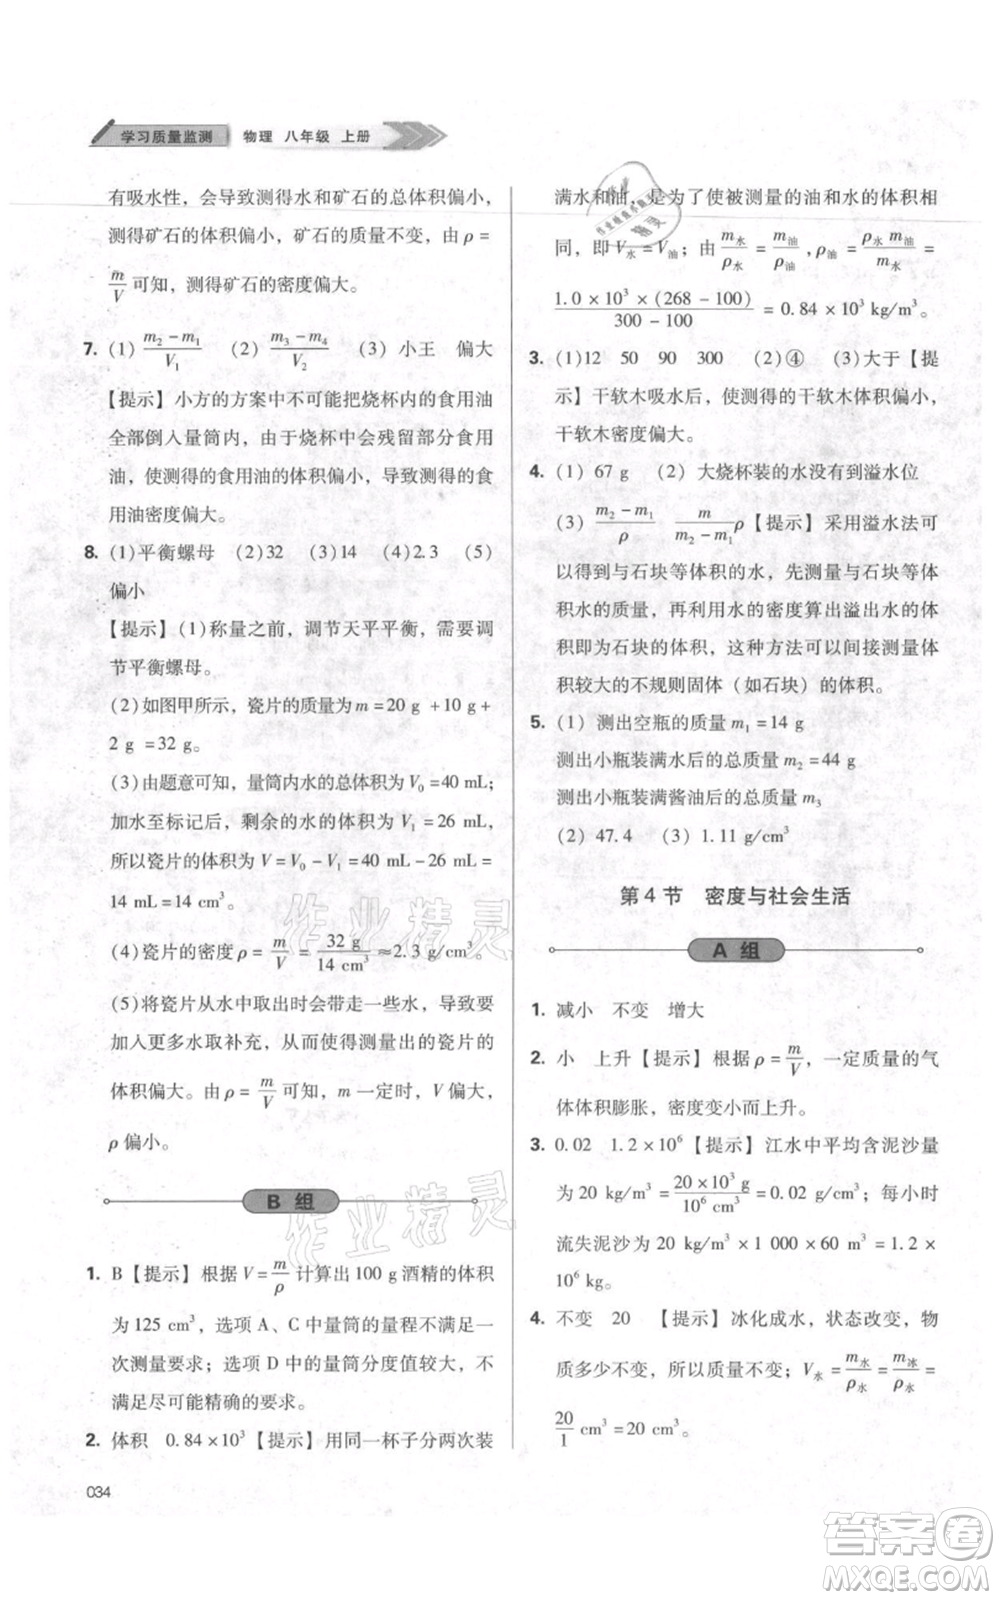 学习质量监测 物理 八年级 上册
有吸水性，会导致测得水和矿石的总体积偏小，
测得矿石的体积偏小，矿石的质量不变，由 ρ =
m/V 可知，测得矿石的密度偏大。
7. (1) (m₂-m₁)/V₁ (2) (m₃-m₄)/V₂ (3) 小王 偏大
【提示】小方的方案中不可能把烧杯内的食用油
全部倒入量筒内，由于烧杯中会残留部分食用
油，使测得的食用油的体积偏小，导致测得的食
用油密度偏大。
8. (1)平衡螺母 (2)32 (3)14 (4)2.3 (5)
偏小
【提示】(1)称量之前，调节天平平衡，需要调
节平衡螺母。
(2)如图甲所示，瓷片的质量为 m = 20 g + 10 g +
2 g = 32 g。
(3)由题意可知，量筒内水的总体积为 V₀ = 40 mL；
加水至标记后，剩余的水的体积为 V₁ = 26 mL，
所以瓷片的体积为 V = V₀ - V₁ = 40 mL - 26 mL =
14 mL = 14 cm³。
(4)瓷片的密度 ρ = m/V = 32 g/14 cm³ ≈ 2.3 g/cm³。
(5)将瓷片从水中取出时会带走一些水，导致要
加入更多水取补充，从而使测量出的瓷片的
体积偏大。由 ρ = m/V 可知，m 一定时，V 偏大，
ρ 偏小。
B 组
1. B【提示】根据 V = m/ρ 计算出 100 g 酒精的体积
为 125 cm³，选项 A、C 中量筒的量程不满足一
次测量要求；选项 D 中的量筒分度值较大，不
满足尽可能精确的要求。
2. 体积 0.84×10³【提示】用同一杯子分两次装
034
满水和油，是为了使被测量的油和水的体积相
同，即 V水 = V油；由 m水/ρ水 = m油/ρ油，ρ油 = ρ水m油/m水 =
1.0×10³×(268-100)/(300-100) = 0.84×10³ kg/m³。
3. (1)12 50 90 300 (2)④ (3)大于【提
示】干软木吸水后，使测得的干软木体积偏小，
干软木密度偏大。
4. (1) 67 g (2) 大烧杯装的水没有到溢水位
(3) (m₂-m₁)/ρ m/(m₂-m₁)ρ【提示】采用溢水法可
以得到与石块等体积的水，先测量与石块等体
积水的质量，再利用水的密度算出溢出水的体
积即为石块的体积，这种方法可以间接测量体
积较大的不规则固体（如石块）的体积。
5. (1) 测出空瓶的质量 m₁ = 14 g
测出小瓶装满水后的总质量 m₂ = 44 g
测出小瓶装满酱油后的总质量 m₃
(2) 47.4 (3) 1.11 g/cm³
第 4 节 密度与社会生活
A 组
1. 减小 不变 增大
2. 小 上升【提示】根据 ρ = m/V，一定质量的气
体体积膨胀，密度变小而上升。
3. 0.02 1.2×10⁶【提示】江水中平均含泥沙量
为 20 kg/m³ = 20×10³ g/10⁶ cm³ = 0.02 g/cm³；每小时
流失泥沙为 20 kg/m³×1 000×60 m³ = 1.2×
10⁶ kg。
4. 不变 20 【提示】冰化成水，状态改变，物
质多少不变，所以质量不变；V水 = m水/ρ水 = m冰/ρ水 =
20/1 cm³ = 20 cm³。
作业精灵
作业精灵
答案卷
MXQE.COM